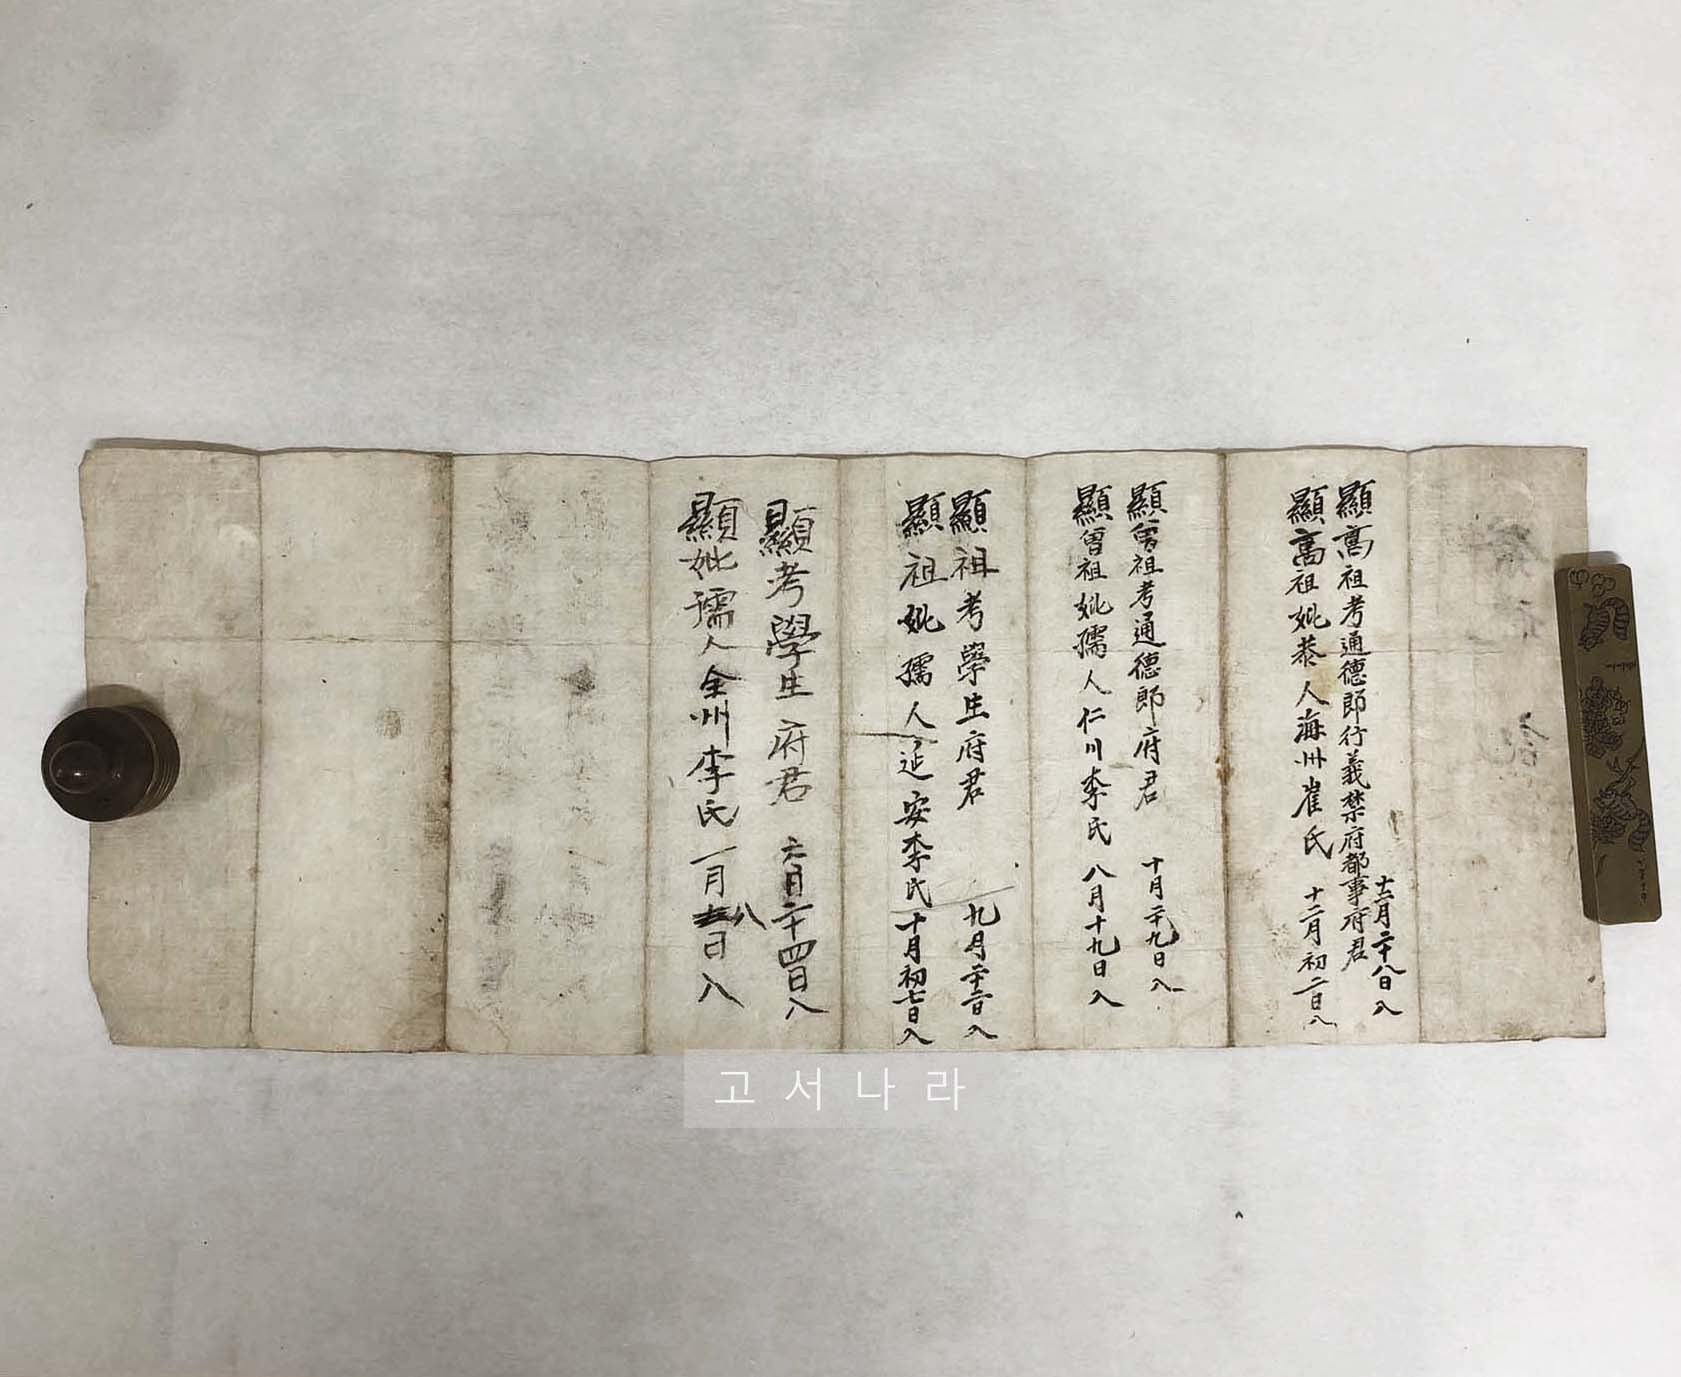 顯高祖考通德郎行義禁府都事府君 十二月二十八日入
顯高祖妣恭人海州崔氏 十二月初二日入
顯曾祖考通德郎府君 十月二十九日入
顯曾祖妣孺人仁川李氏 八月十九日入
顯祖考學生府君 九月二十二日入
顯祖妣孺人延安李氏 十月初七日入
顯考學生府君 六月二十四日入
顯妣孺人全州李氏 一月八日入
고서나라